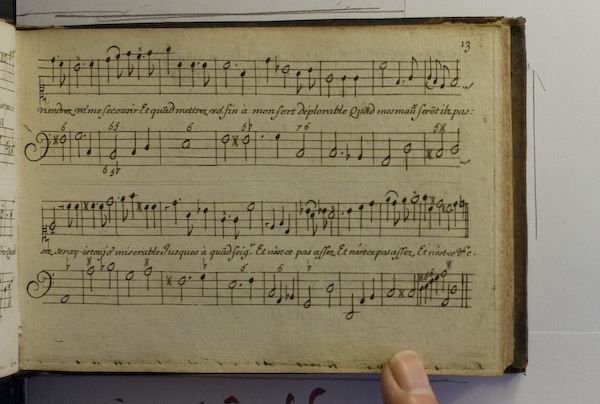 13
viendrez vo' me secourir Et quãd mettrez vo' fin à mon sort deplorable Quãd mes maux serõt ilz pas:
6 65 6 67 76 58
6 5b7
sez seray-ie toujo' miserable Jusques à quãd seigr. Et n'est ce pas assez, Et n'est ce pas assez, Et n'est ce &c
6 6